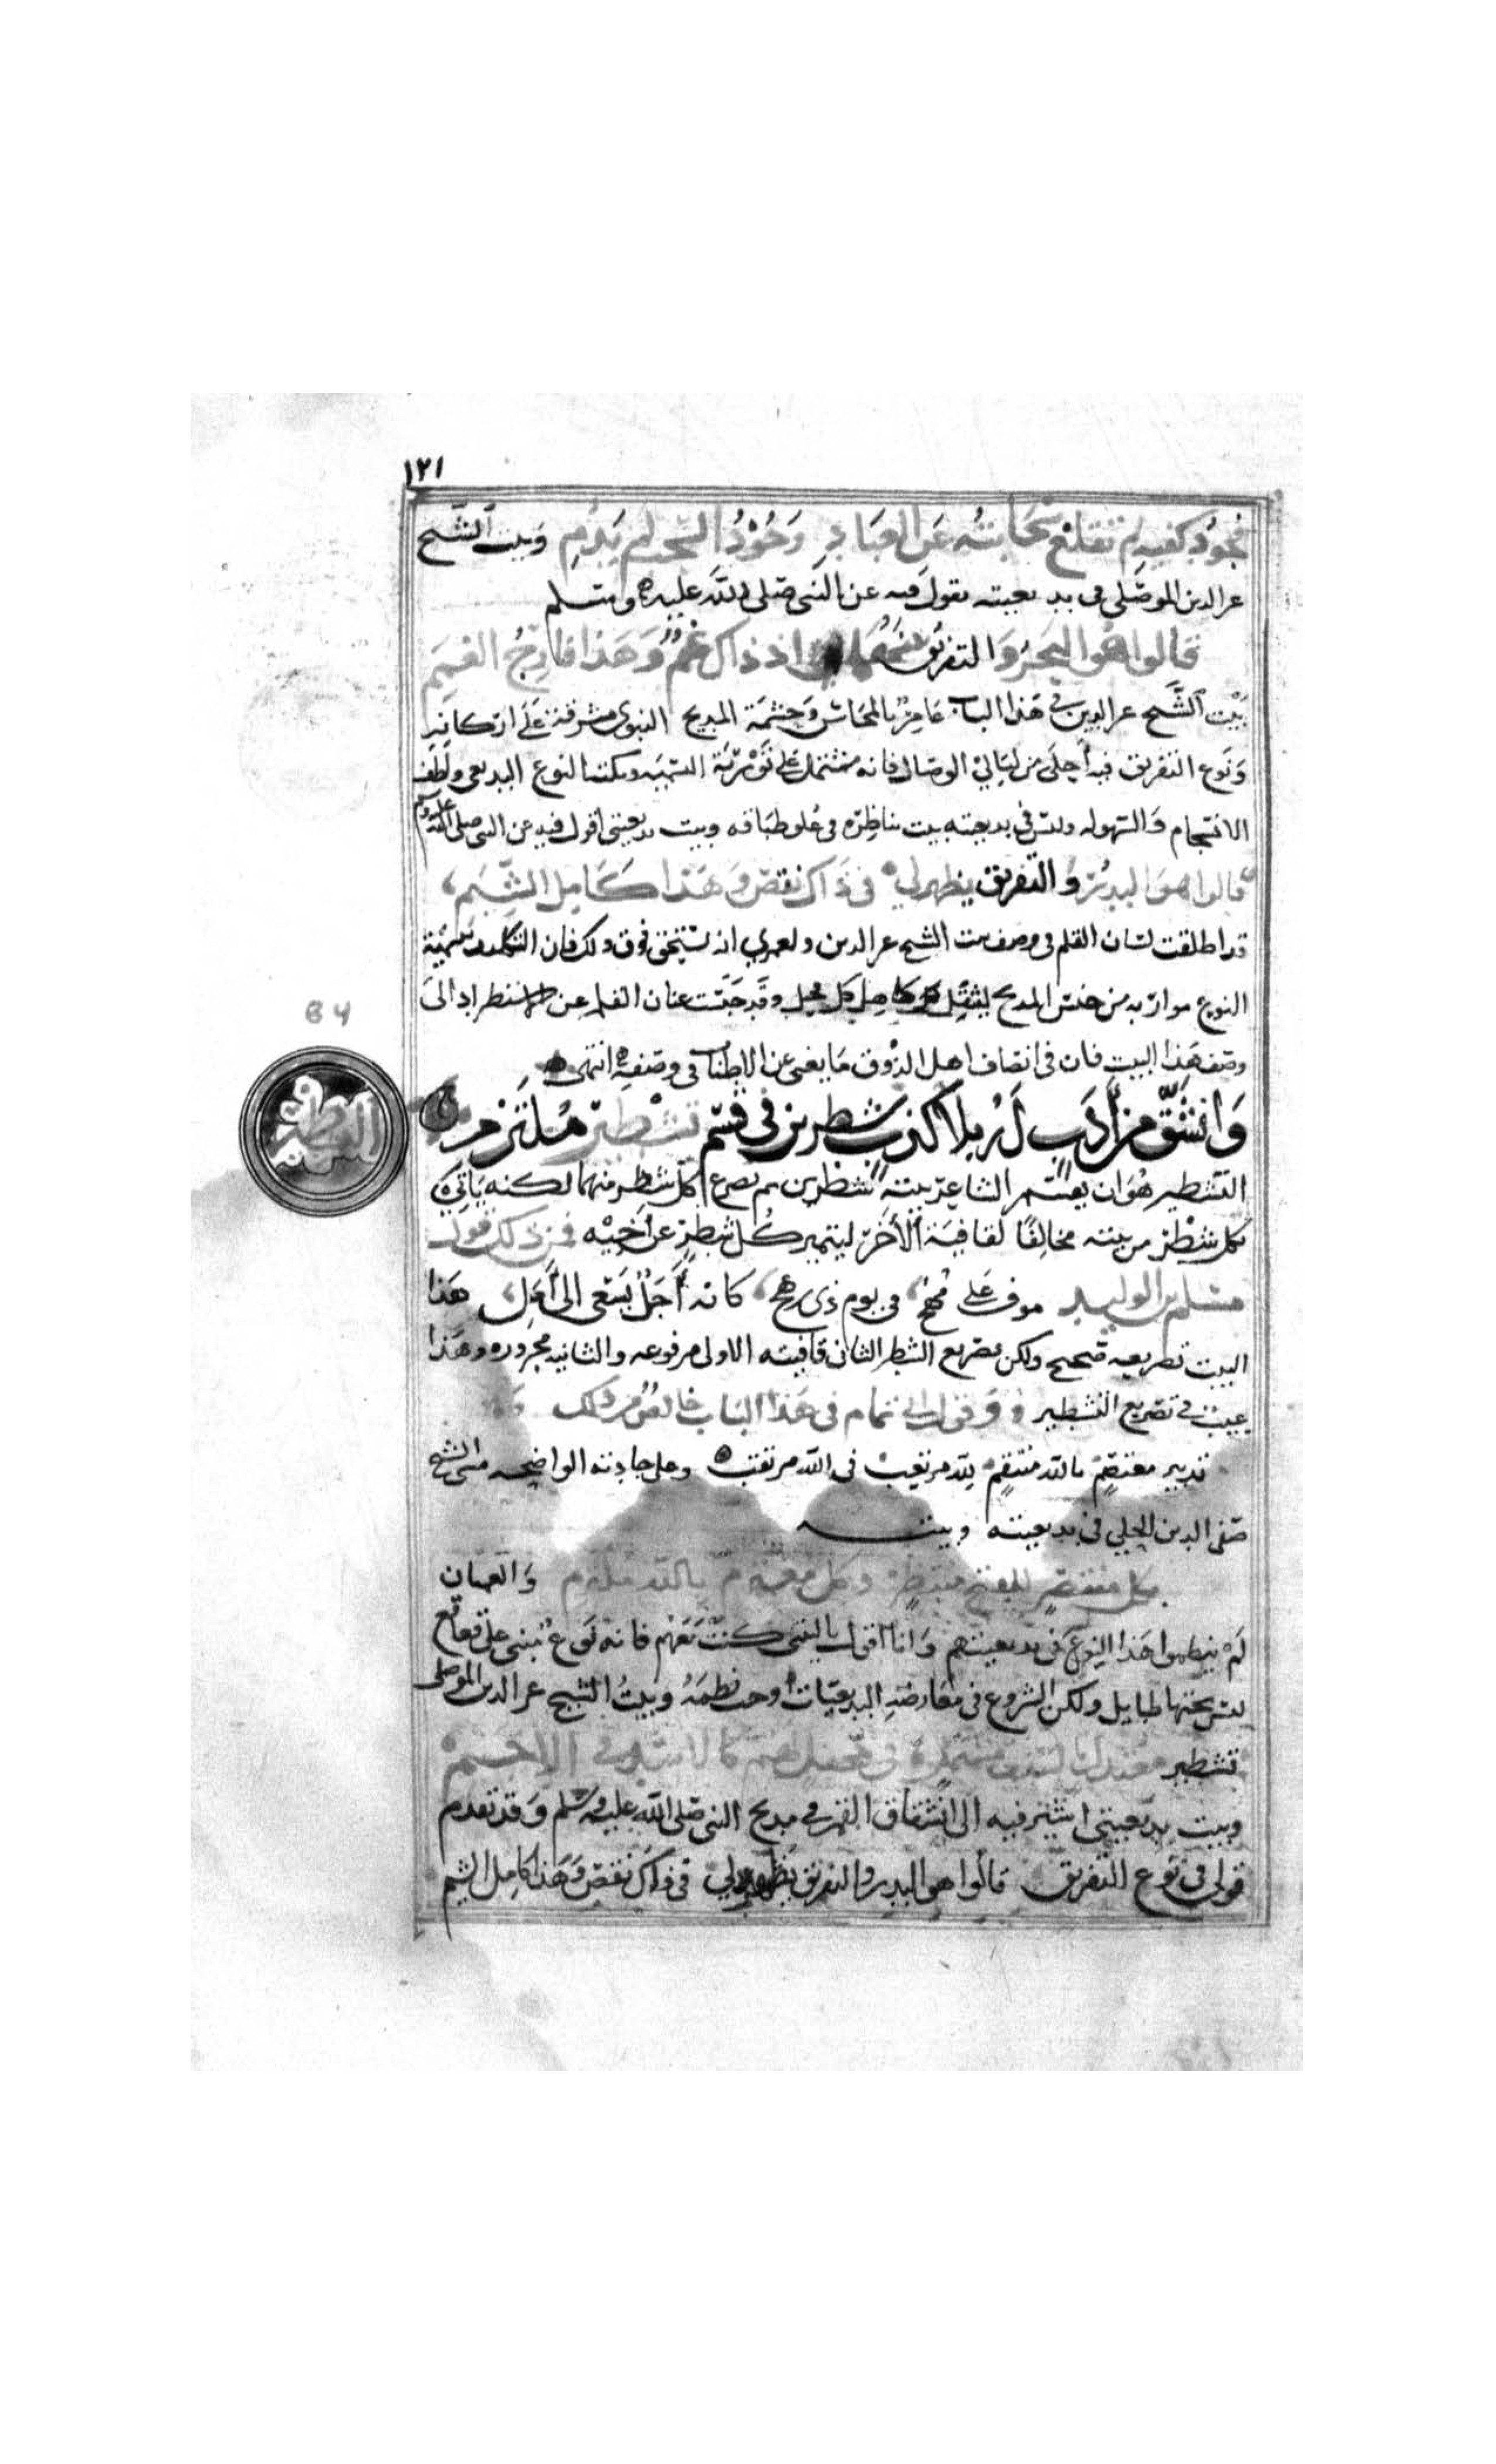 ١٢١
فجود كفيه لم تقلع سحائبه عن العباد وجود السحب لم يدم وبيت الشيخ
عز الدين الموصلي في بديعيته يقول فيه عن النبي صلى الله عليه وسلم
قالوا هو البحر والتفريق بينهما اذ ذاك غم وهذا فارج الغمم
بيت الشيخ عز الدين في هذا الباب عامر بالمحاسن وحشمة المديح النبوي مشرقة على اركانه
ونوع التفريق فيه أحلى من ليالي الوصال فانه مشتمل على تورية التسمية ونكتة النوع البديعي ولطف
الانسجام والسهوله وليس في بديعيته بيت يناظره في علو طباقه وبيت بديعيتي أقول فيه عن النبي صلى الله عليه وسلم
قالوا هو البدر والتفريق يظهر لي في ذاك نقص وهذا كامل الشيم
قد اطلقت لسان القلم في وصف بيت الشيخ عز الدين ولعمري انه يستحق فوق ذلك فان التكلف بتسمية
النوع موارّى به من جنس المديح ليثقل كاهل كل فحل وقد حبست عنان القلم عن الاستطراد الى
وصف هذا البيت فان في انصاف اهل الذوق ما يغني عن الاطناب في وصفه انتهى
وانشق من أدب له بلا كذب شطرين في قسم تشطير ملتزم
التشطير
التشطير هو ان يقسم الشاعر بيته شطرين ثم يصرع كل شطر منهما لكنه يأتي
بكل شطر من بيته مخالفا لقافية الأخر ليتميز كل شطر عن أخيه فمن ذلك قول
مسلم بن الوليد موف على مهج في يوم ذي رهج كانه أجل يسعى الى أمل هذا
البيت تصريعه صحيح ولكن تصريع الشطر الثان قافيته الاولى مرفوعه والثانيه مجروره وهذا
عيب في تصريع التشطير وقول ابي تمام في هذا الباب خالص من ذلك
تدبير معتصم بالله منتقم لله مرتغب في الله مرتقب وعلى جادته الواضحه مشى الشيخ
صفي الدين الحلي في بديعيته وبيته
بكل منتصر للفتح منتظر وكل معتزم بالله ملتزم والعميان
لم ينظموا هذا النوع في بديعيتهم وانا اقول ياليتني كنت معهم فانه نوع مبني على قعاقع
ليس تحتها طايل ولكن الشروع في معارضة البديعيات أوجب نظمه وبيت الشيخ عز الدين الموصلي
تشطير معتدل بالسيف مشتمل في جحفل لهم كالاسد في الاجم
وبيت بديعيتي اشير فيه الى انشقاق القمر في مديح النبي صلى الله عليه وسلم وقد تقدم
قولي في نوع التفريق قالوا هو البدر والتفريق يظهر لي في ذاك نقص وهذا كامل الشيم